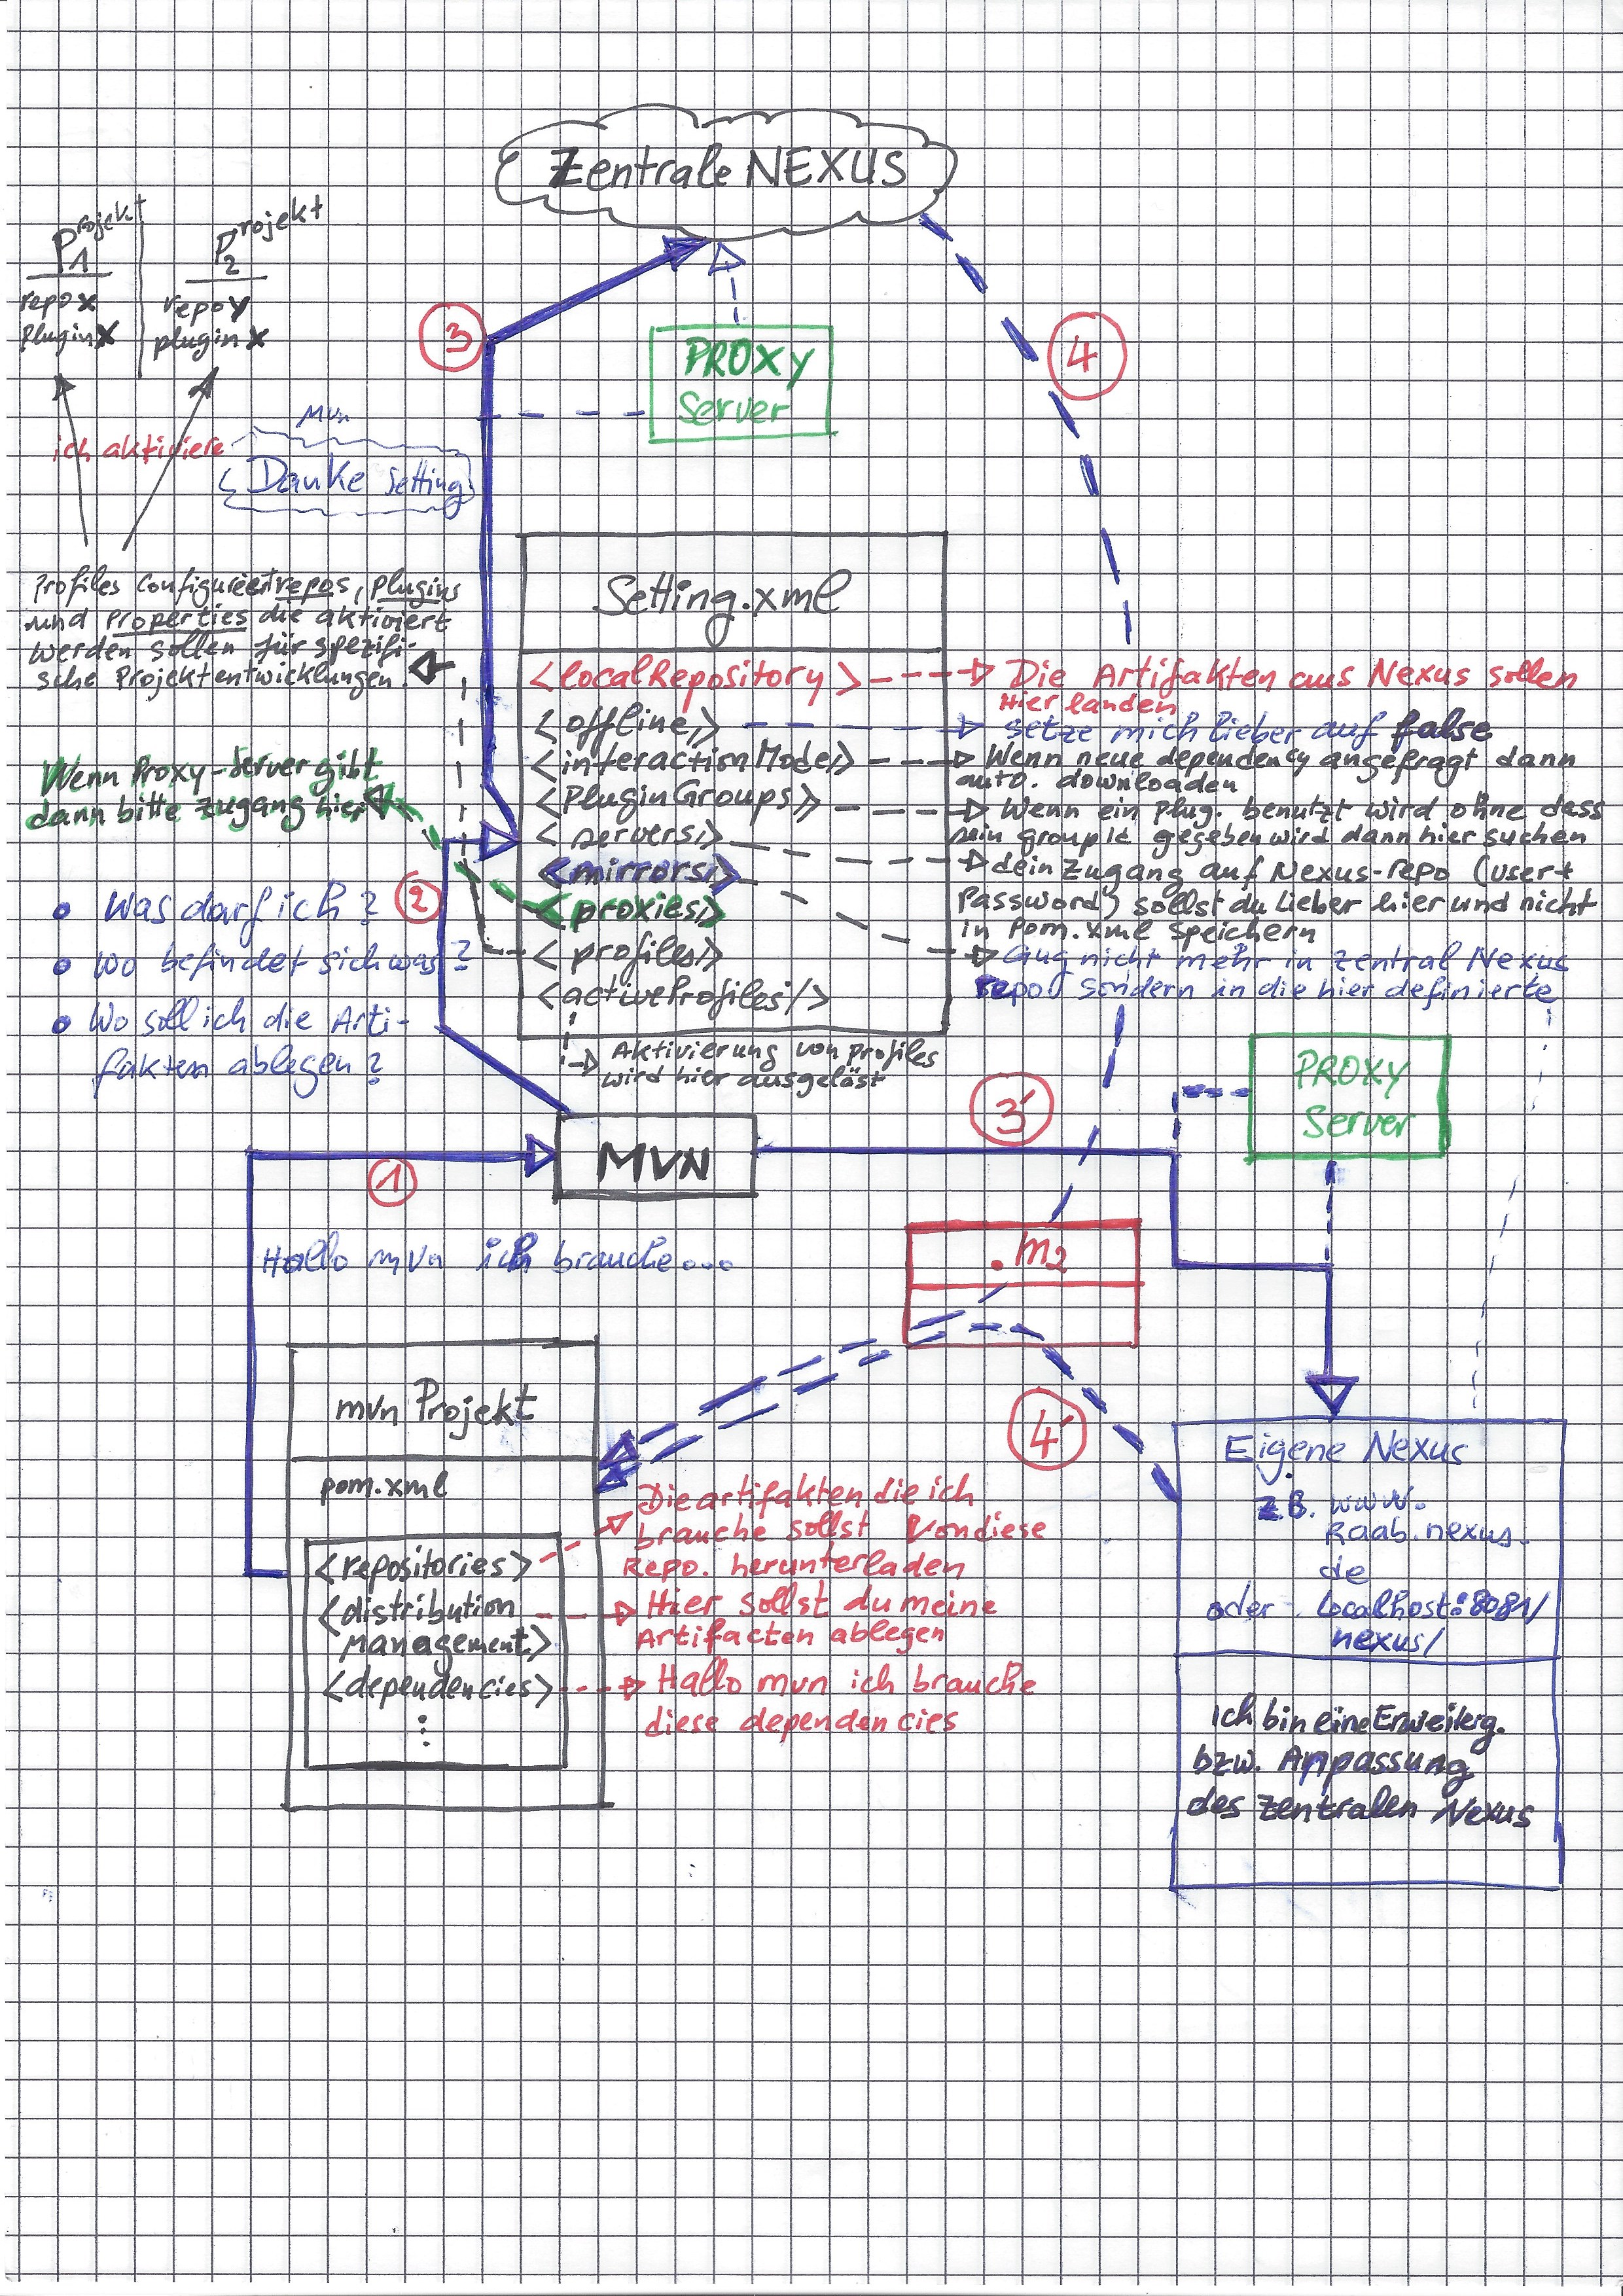 Zentrale NEXUS
Projekt
1
Projekt
2
repo x
Plugin X
repo y
plugin X
3
4
PROXY
Server
Mvn
ich aktiviere
Danke Setting
Setting.xml
Profiles Configuriert repos, Plugins
und Properties die aktiviert
werden sollen für spezifi-
sche Projektentwicklungen.
<localRepository>
Die Artifakten aus Nexus sollen
Hier landen
<offline/>
setze mich lieber auf false
<interactionMode>
Wenn neue dependency angefragt dann
auto. downloaden
<PluginGroups/>
Wenn ein Plug. benutzt wird ohne dass
sein group Id gegeben wird dann hier suchen
<servers/>
dein Zugang auf Nexus-repo (user+
Password) sollst du Lieber hier und nicht
in Pom.xml speichern
<mirrors/>
Gug nicht mehr in Zentral Nexus
repo sondern in die hier definierte
<proxies/>
<profiles/>
<activeProfiles/>
Aktivierung von Profiles
wird hier ausgelöst
Wenn Proxy-Server gibt
dann bitte Zugang hier
2
• Was darf ich?
• Wo befindet sich was?
• Wo soll ich die Arti-
fakten ablegen?
PROXY
Server
3'
MVN
1
Hallo mvn ich brauche...
.m2
mvn Projekt
pom.xml
4'
<repositories>
<distribution
management>
<dependencies>
⋮
Die artifakten die ich
brauche sollst von diese
Repo. herunterladen
Hier sollst du meine
Artifacten ablegen
Hallo mvn ich brauche
diese dependencies
Eigene Nexus
z.B. www.
Raab.nexus.
de
oder Localhost:8081/
nexus/
ich bin eine Erweiterg.
bzw. Anpassung
des zentralen Nexus